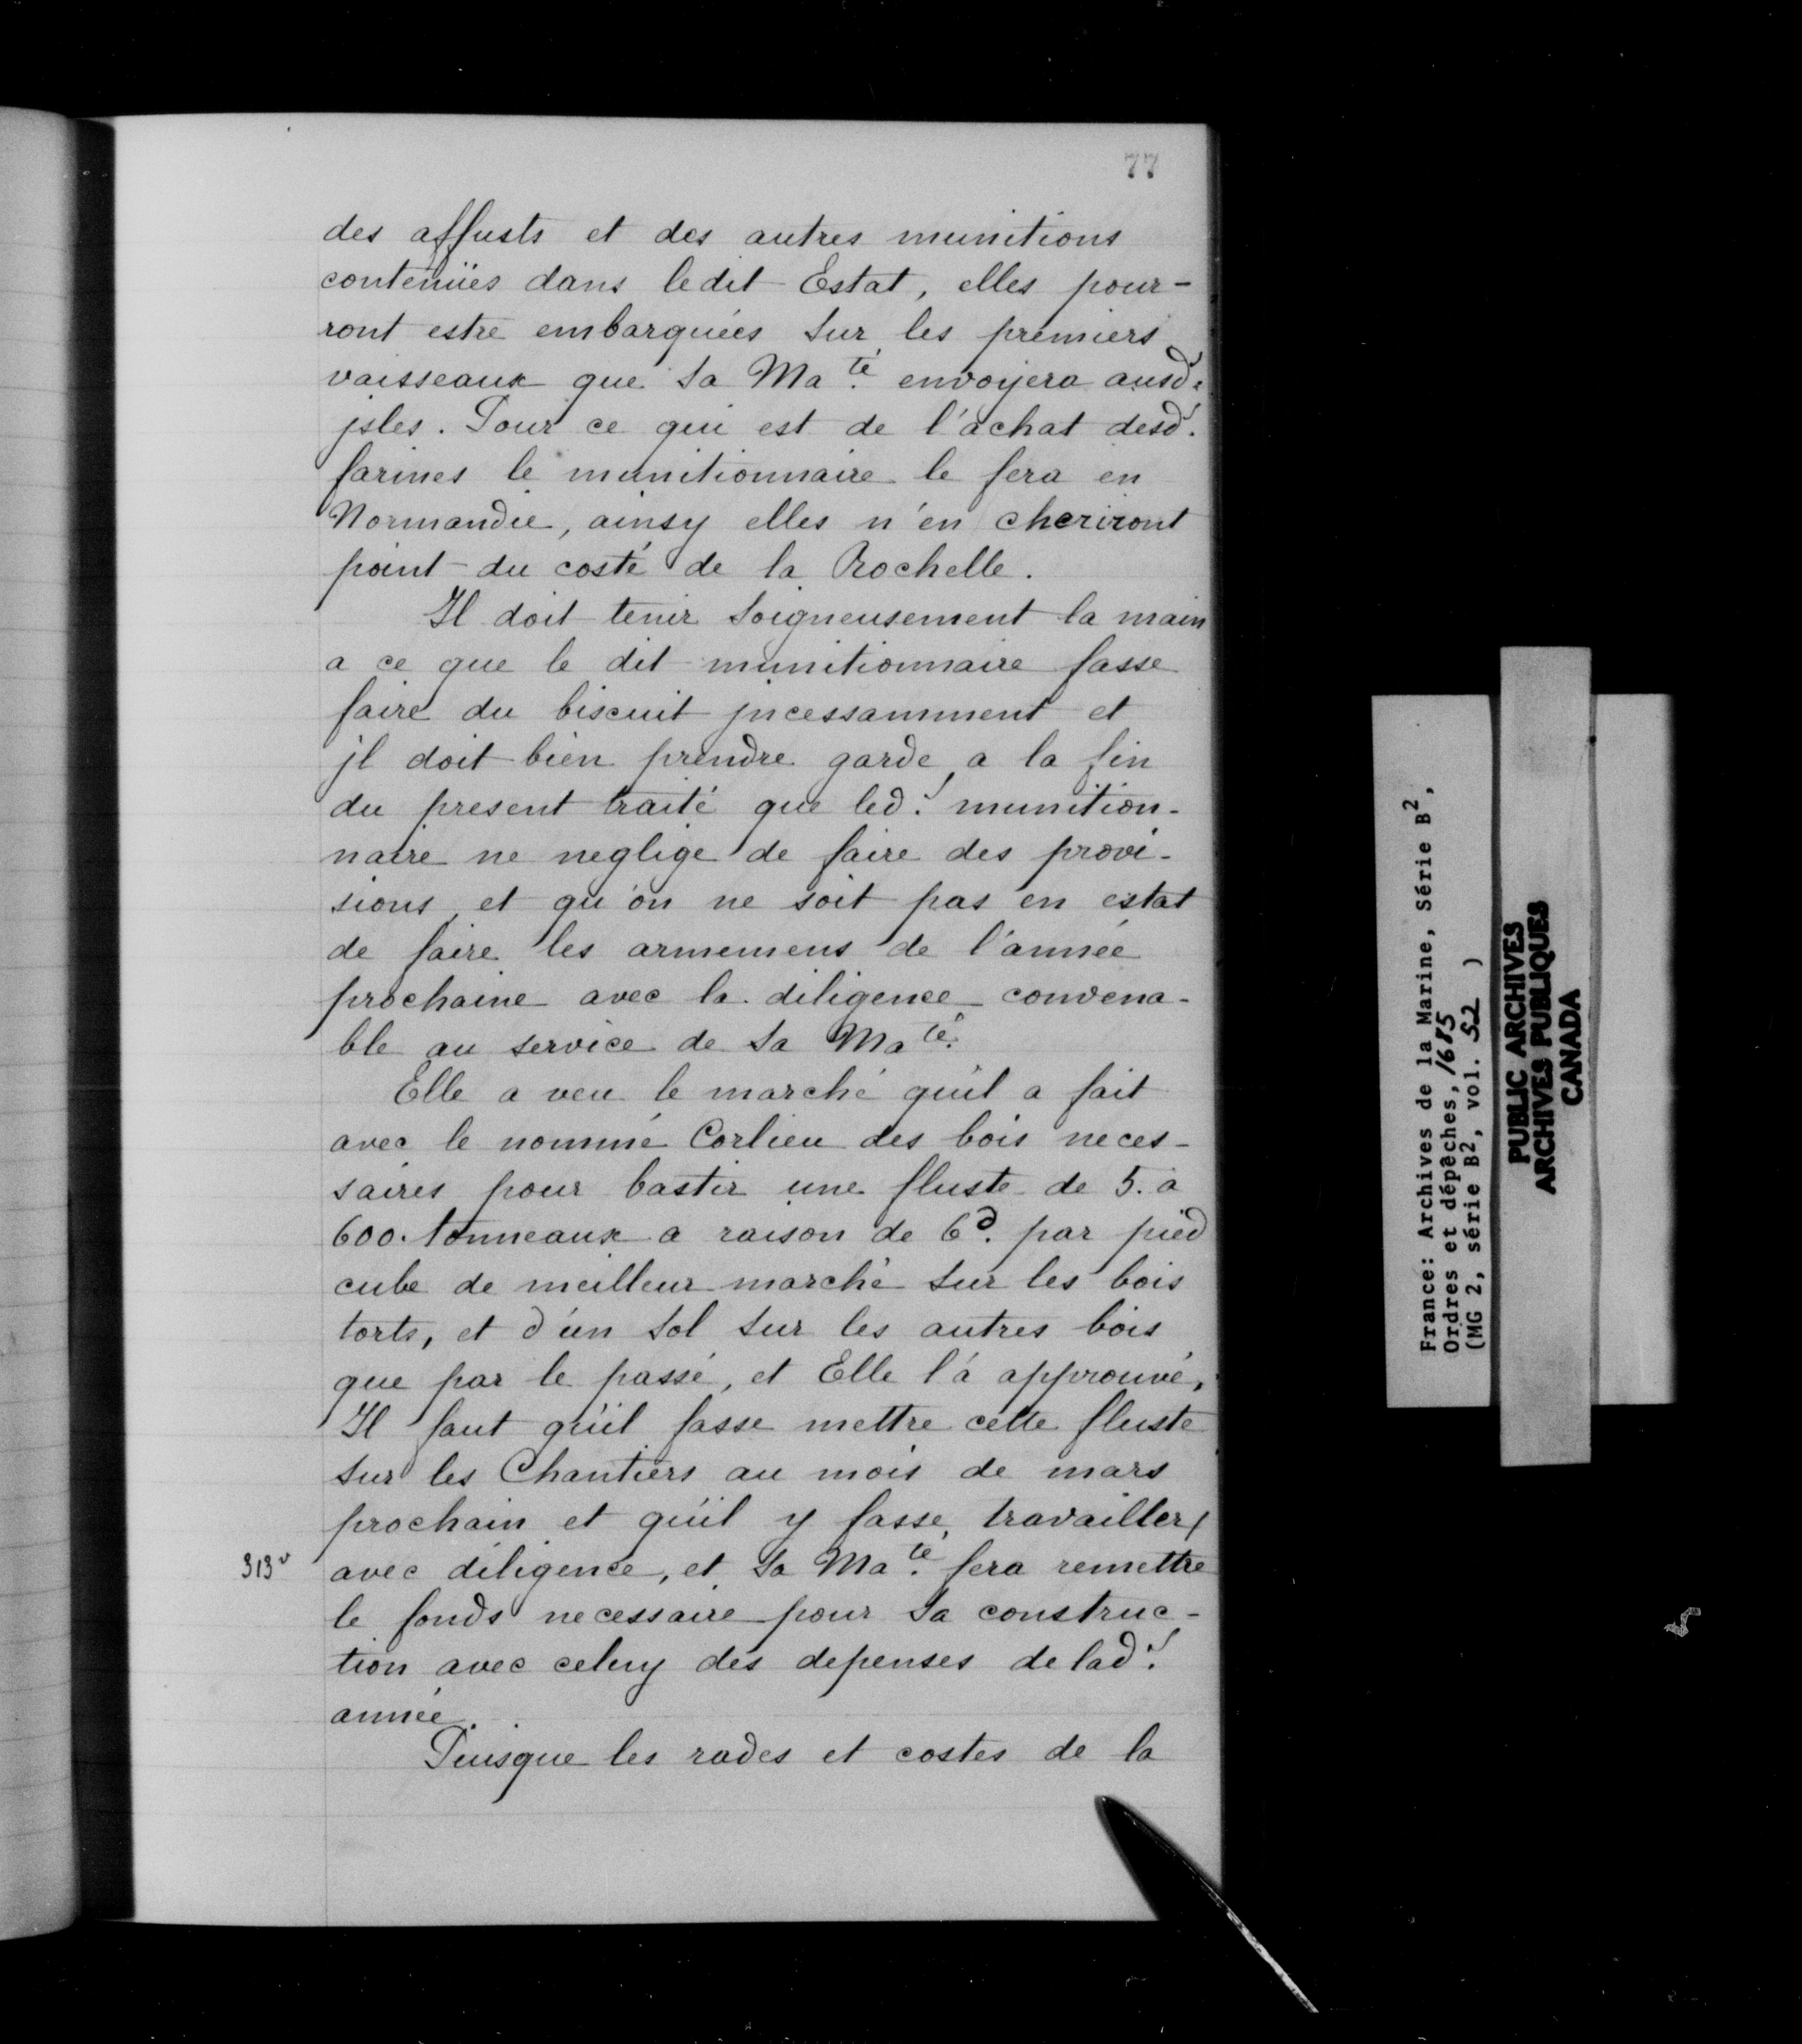 77
des affusts et des autres munitions
contenües dans ledit Estat, elles pour-
ront estre embarquées sur les premiers
vaisseaux que sa Ma.té envoyera ausd.
jsles. Pour ce qui est de l'achat desd.
farines le munitionnaire le fera en
Normandie, ainsy elles n'en cheriront
point du costé de la Rochelle.
Il doit tenir soigneusement la main
a ce que le dit munitionnaire fasse
faire du biscuit jncessamment et
jl doit bien prendre garde a la fin
du present traité que led.t munition-
naire ne neglige de faire des provi-
sions et qu'on ne soit pas en estat
de faire les armemens de l'année
prochaine avec la diligence convena-
ble au service de sa Ma.té
Elle a veu le marché qu'il a fait
avec le nommé Corlieu des bois neces-
saires pour bastir une fluste de 5. a
600. tonneaux a raison de 6d. par pied
cube de meilleur marché sur les bois
torts, et d'un sol sur les autres bois
que par le passé, et Elle l'a approuvé,
Il faut qu'il fasse mettre cette fluste
sur les Chantiers au mois de mars
prochain et qu'il y fasse travailler/
313v avec diligence, et sa Ma.té fera remettre
le fonds necessaire pour sa construc-
tion avec celuy des depenses de lad.t
année.
Puisque les rades et costes de la
France: Archives de la Marine, Série B2,
Ordres et dépêches, 1685
(MG 2, série B2, vol. 52 )
PUBLIC ARCHIVES
ARCHIVES PUBLIQUES
CANADA